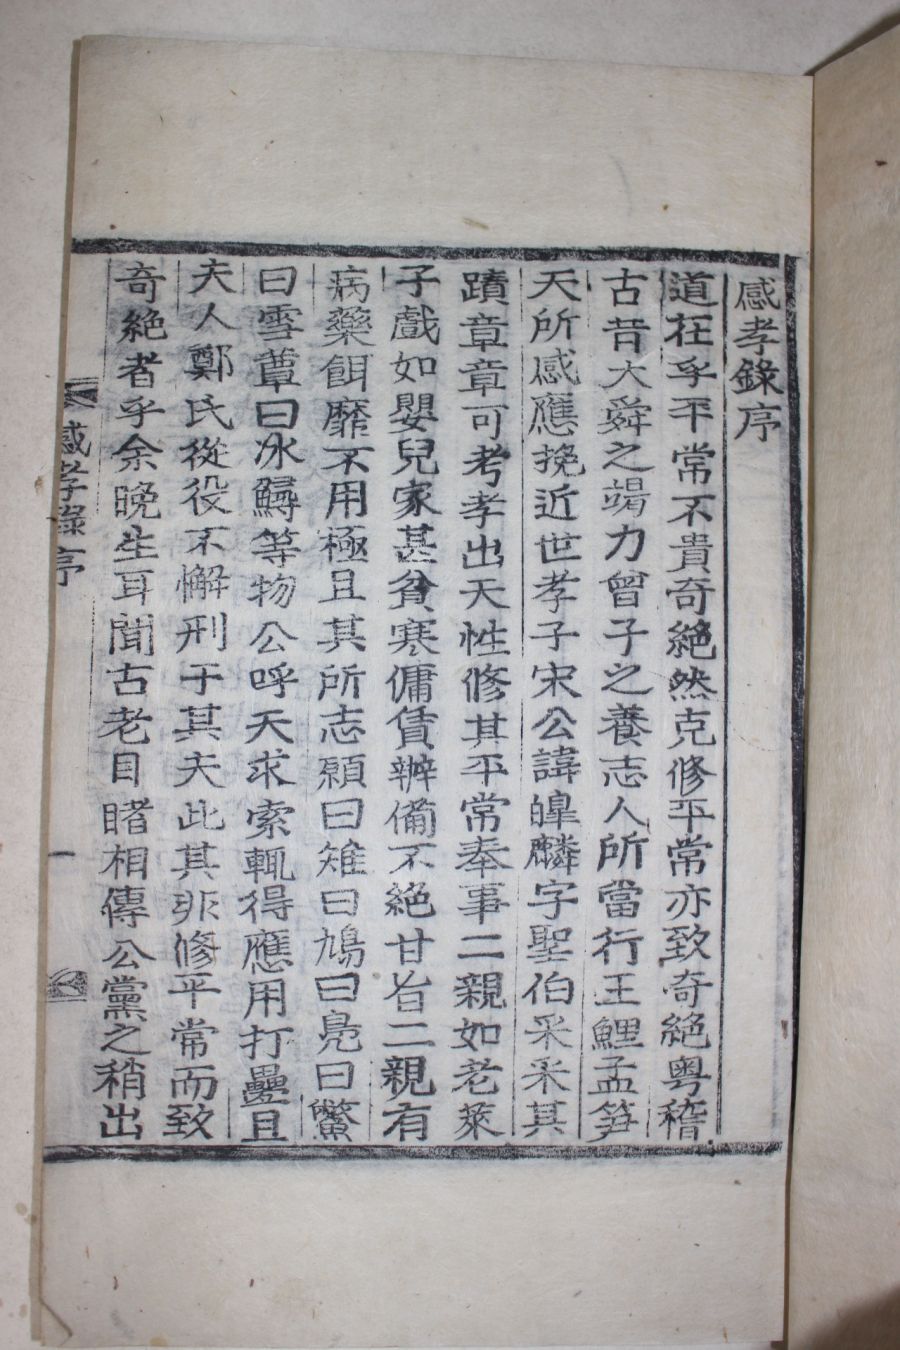 感孝錄序
道在乎平常不貴奇絶然克修平常亦致奇絶粤稽
古昔大舜之竭力曾子之養志人所當行王鯉孟笋
天所感應挽近世孝子宋公諱皥麟字聖伯采采其
蹟章章可考孝出天性修其平常奉事二親如老萊
子戲如嬰兒家甚貧寒傭賃辦備不絶甘旨二親有
病藥餌靡不用極且其所志願曰雉曰鳩曰鳧曰鱉
曰雪蕈曰氷鱘等物公呼天求索輒得應用打疊且
夫人鄭氏從役不懈刑于其夫此其非修平常而致
奇絶者乎余晩生耳聞古老目睹相傳公黨之稍出
感孝錄序
一